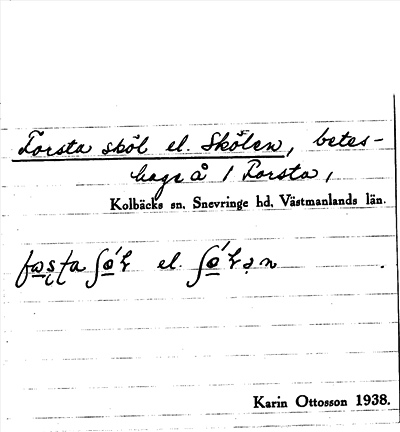 Forsta sköl el. Skölen, betes-
hage å 1 Forsta,
Kolbäcks sn. Snevringe hd. Västmanlands län.
el.
Karin Ottosson 1938.